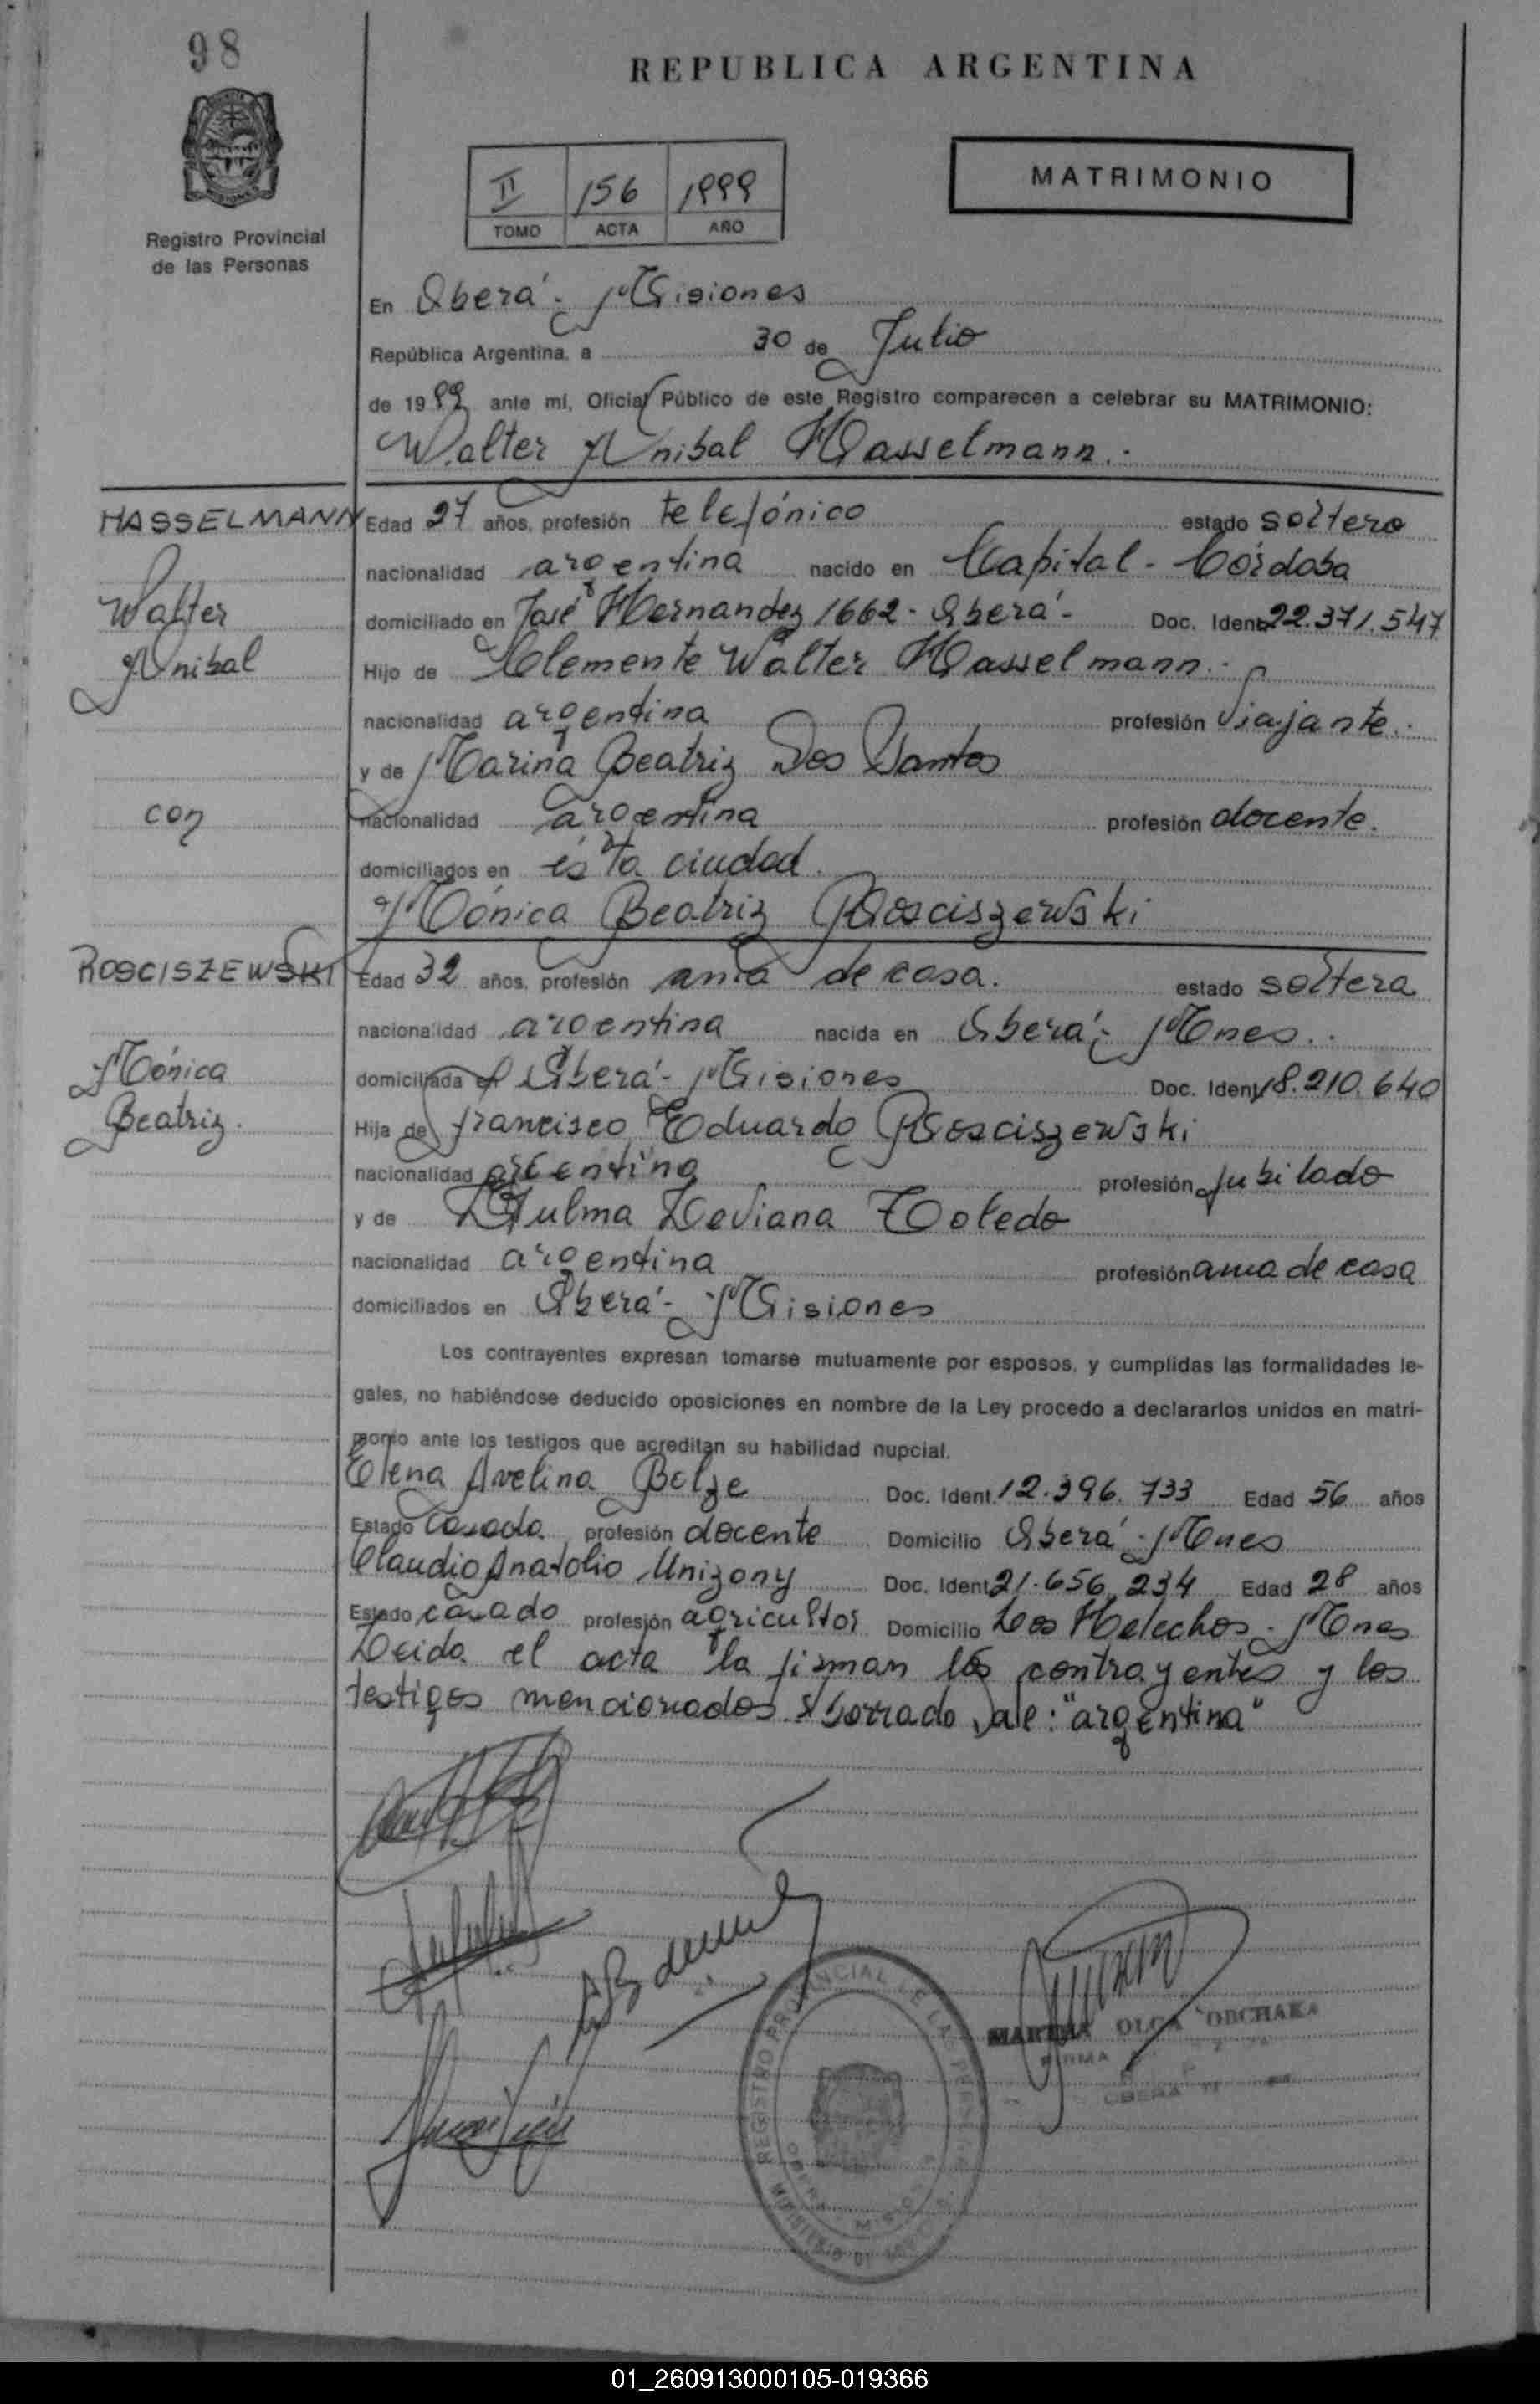 98
REPUBLICA ARGENTINA
MATRIMONIO
II 156 1999
TOMO ACTA AÑO
Registro Provincial
de las Personas
En Oberá - Misiones
República Argentina, a 30 de Julio
de 1999 ante mí, Oficial Público de este Registro comparecen a celebrar su MATRIMONIO:
Walter Anibal Hasselmann.-
HASSELMANN
Walter
Anibal
con
ROSCISZEWSKI
Mónica
Beatriz.
Edad 27 años, profesión telefónico estado soltero
nacionalidad argentina nacido en Capital - Córdoba
domiciliado en José Hernandez 1662 - Oberá - Doc. Ident. 22.371.547
Hijo de Clemente Walter Hasselmann.-
nacionalidad argentina profesión viajante.
y de Marina Beatriz Dos Santos
nacionalidad argentina profesión docente.
domiciliados en ésta ciudad.
Mónica Beatriz Rosciszewski
Edad 32 años, profesión ama de casa. estado soltera
nacionalidad argentina nacida en Oberá - Mnes..
domiciliada en Oberá - Misiones Doc. Ident. 18.210.640
Hija de Francisco Eduardo Rosciszewski
nacionalidad argentina profesión jubilado
y de Zulma Leviana Toledo
nacionalidad argentina profesión ama de casa
domiciliados en Oberá - Misiones
Los contrayentes expresan tomarse mutuamente por esposos, y cumplidas las formalidades le-
gales, no habiéndose deducido oposiciones en nombre de la Ley procedo a declararlos unidos en matri-
monio ante los testigos que acreditan su habilidad nupcial.
Elena Avelina Bolze Doc. Ident. 12.396.733 Edad 56 años
Estado casada profesión docente Domicilio Oberá - Mnes
Claudio Anatolio Unizony Doc. Ident. 21.656.234 Edad 28 años
Estado casado profesión agricultor Domicilio Los Helechos - Mnes
Leida el acta la firman los contrayentes y los
testigos mencionados. S/borrado vale: "argentina"
REGISTRO PROVINCIAL DE LAS
MARTHA OLGA OBCHAKA
FIRMA
OBERA
01_260913000105-019366